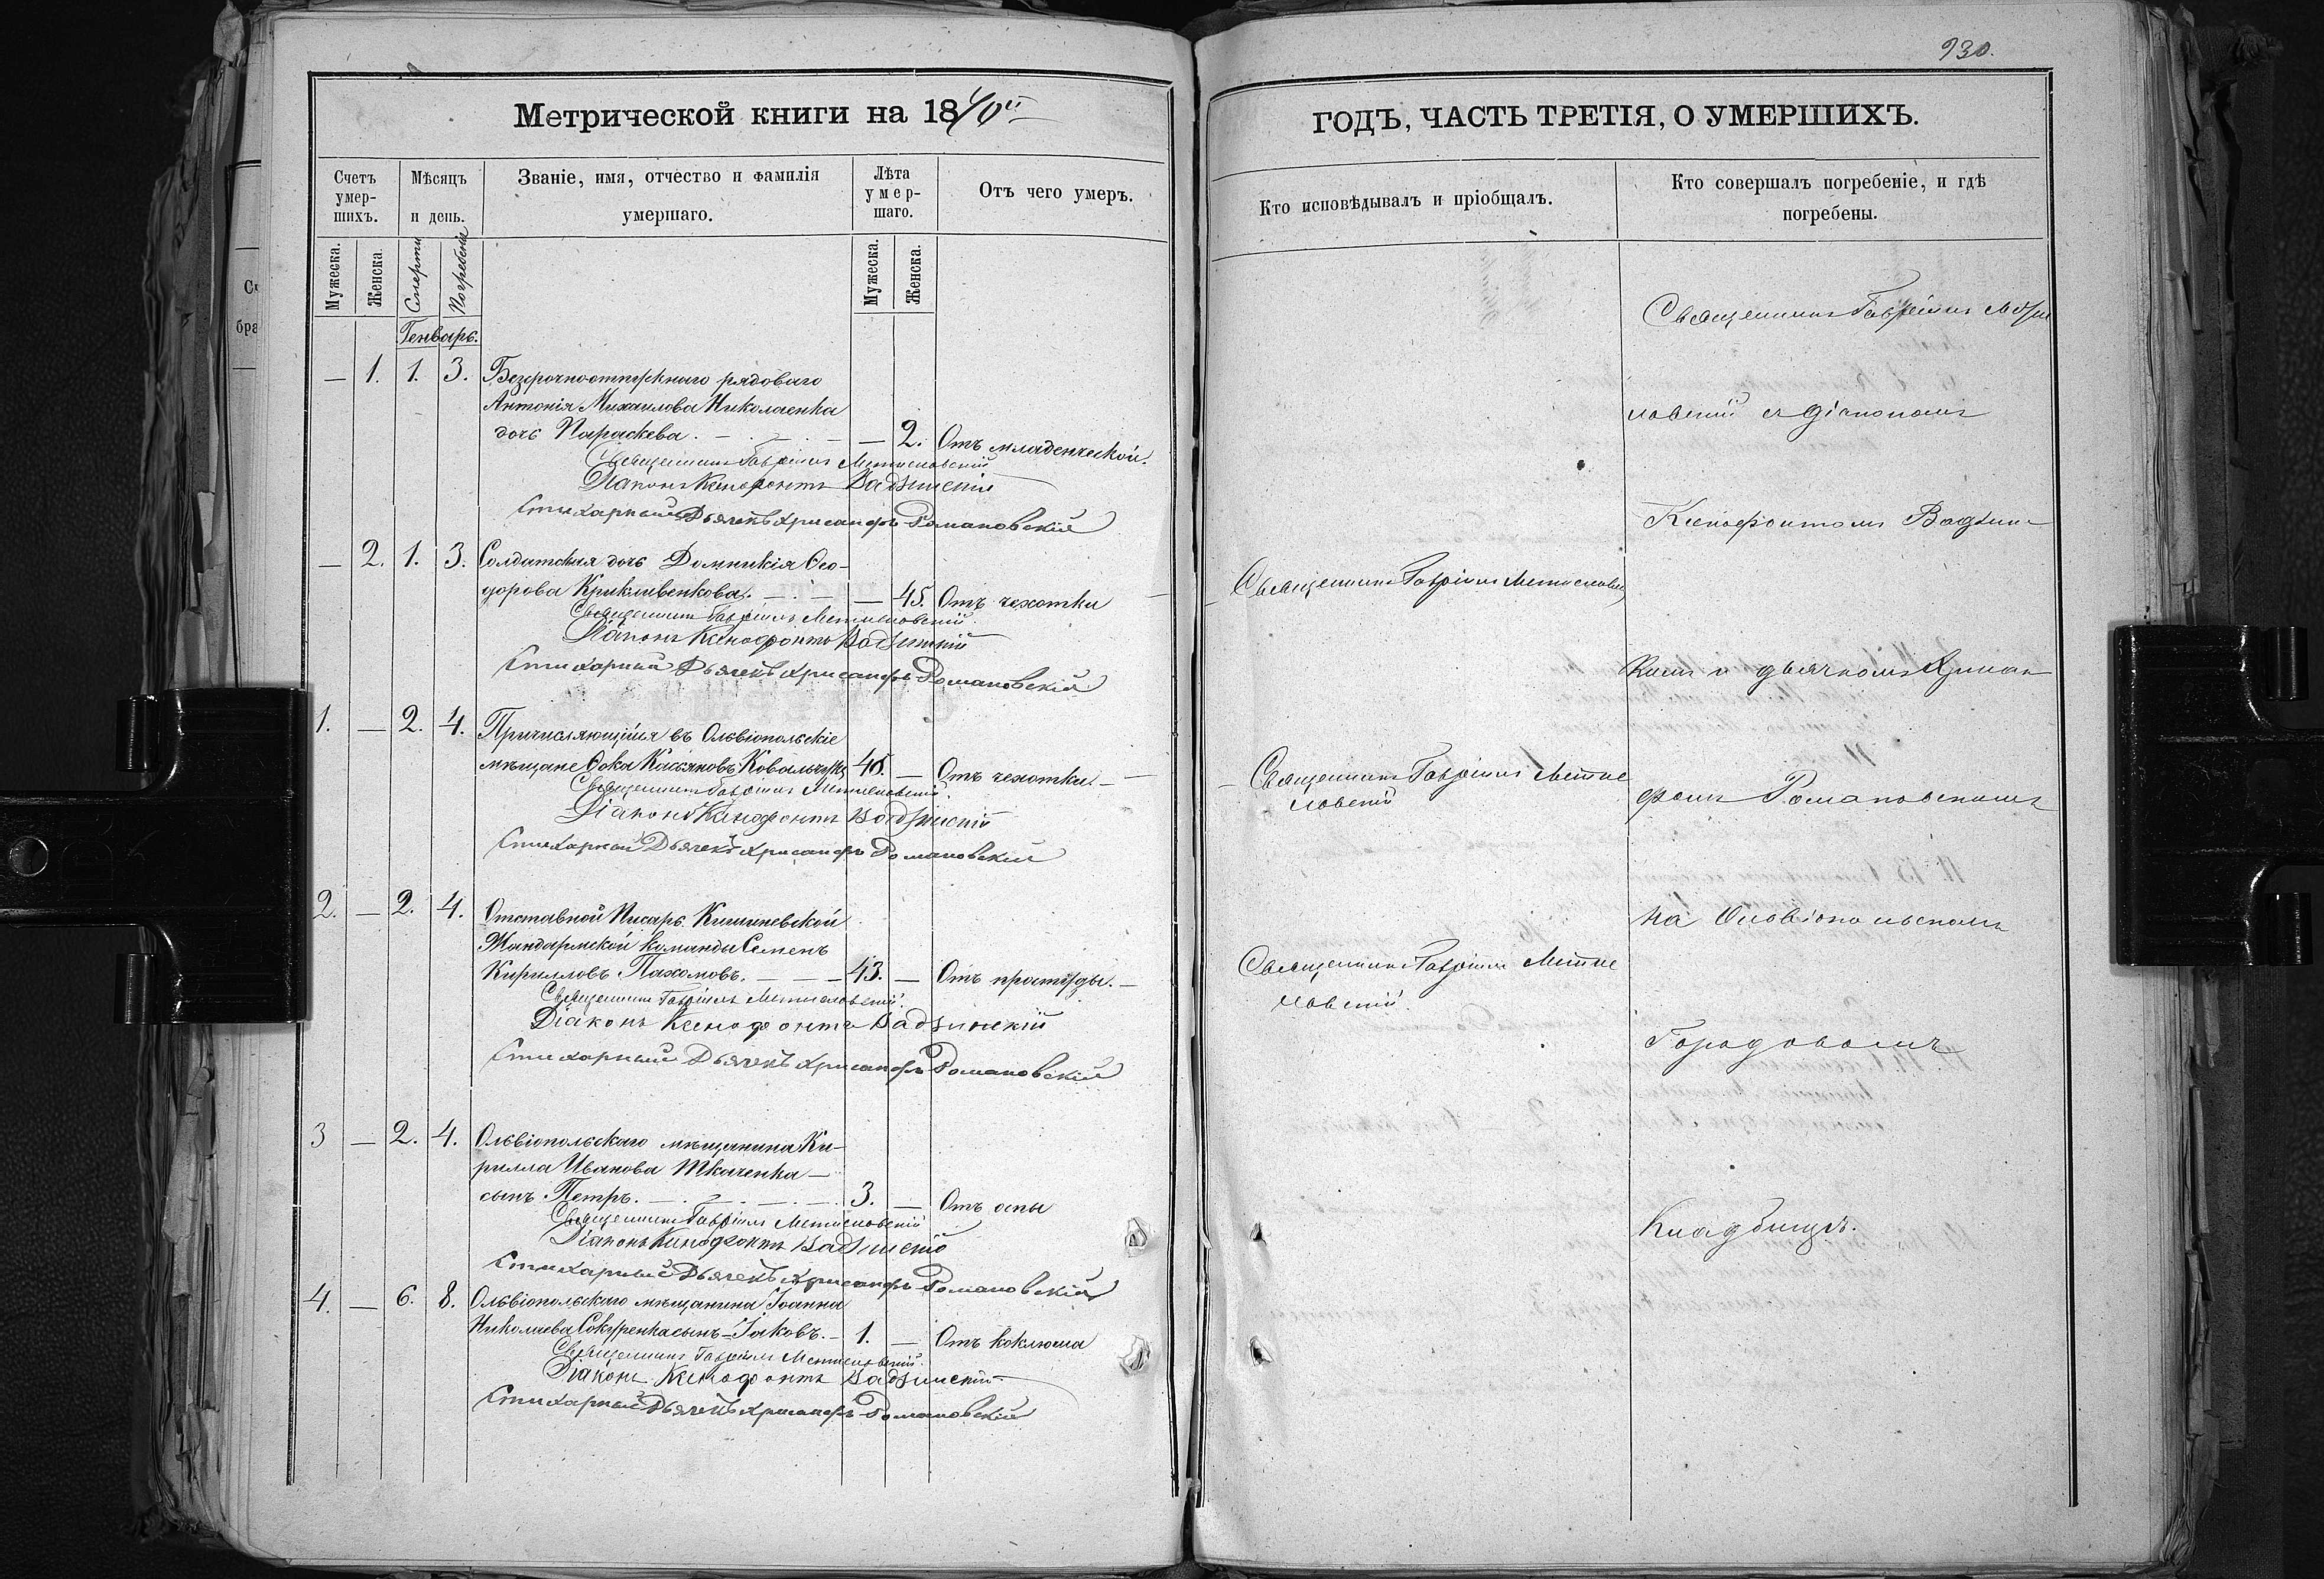 930.
Метрической книги на 1870й
Счетъ умер-шихъ.
Мѣсяцъ и день.
Званіе, имя, отчество и фамилія умершаго.
Лѣта умер-шаго.
Отъ чего умеръ.
Мужеска.
Женска
Смерти
Погребенія
Мужеска.
Женска.
Генварь.
— 1. 1. 3. Безсрочноотпускнаго рядоваго
Антонія Михаилова Николаенка
дочь Параскева. — — 2. Отъ младенческой.
Священникъ Гавріилъ
Діаконъ Ксенофонтъ
Стихарный Дьячекъ Хрисанфъ Романовскій
— 2. 1. 3. Солдатская дочь Домникія Ѳео-
дорова Крикливенкова. — — 45. Отъ чехотки
Священникъ Гавріилъ
Діаконъ Ксенофонтъ
Стихарный Дьячекъ Хрисанфъ Романовскій
1. — 2. 4. Причисляющійся въ Ольвіопольскіе
мѣщане Ѳока Касьяновъ Ковальчукъ — Отъ чехотки. —
Священникъ Гавріилъ
Діаконъ Ксенофонтъ
Стихарный Дьячекъ Хрисанфъ Романовскій
2. — 2. 4. Отставной Писарь Кишиневской
Жандармской команды Семенъ
Кирилловъ Пахомовъ. — 43. — Отъ простуды. —
Священникъ Гавріилъ
Діаконъ Ксенофонтъ
Стихарный Дьячекъ Хрисанфъ Романовскій
3 — 2. 4. Ольвіопольскаго мѣщанина Ки-
рилла Иванова Ткаченка —
сынъ Петръ. — 3. — Отъ оспы
Священникъ Гавріилъ
Діаконъ Ксенофонтъ
Стихарный Дьячекъ Хрисанфъ Романовскій
4. — 6. 8. Ольвіопольскаго мѣщанина Іоанна
Николаева Сокуренка сынъ Іаковъ. — 1. — Отъ коклюша
Священникъ Гавріилъ
Діаконъ Ксенофонтъ
Стихарный Дьячекъ Хрисанфъ Романовскій
ГОДЪ, ЧАСТЬ ТРЕТІЯ, О УМЕРШИХЪ.
Кто исповѣдывалъ и пріобщалъ.
Кто совершалъ погребеніе, и гдѣ погребены.
Священникъ Гавріилъ
Священникъ Гавріилъ
Священникъ Гавріилъ
Священникъ Гавріилъ
ловскій съ діакономъ
Ксенофонтомъ
кимъ и дьячкомъ Хрисан
фомъ Романовскимъ
на Ольвіопольскомъ
Городовомъ
Кладбищѣ.